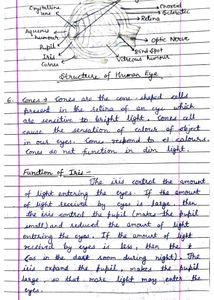 Crystalline
lens
Choroid
Sclerotic
Retina
Aqueous
humour
Pupil
Iris
Cornea
Optic Nerve
Blind spot
Vitreous humour
Structure of Human Eye
6. Cones → Cones are the cone-shaped cells
present in the retina of an eye which
are sensitive to bright light. Cones cell
cause the sensation of colour of object
in our eyes. Cones respond to colours.
Cones do not function in dim light.
Function of Iris -
The iris control the amount
of light entering the eyes. If the amount
of light received by eyes is large then
the iris control the pupil (makes the pupil
small) and reduced the amount of light
entering the eyes. If the amount of light
received by eyes is less, then the
(as in the dark room during night) The
iris expand the pupil, makes the pupil
large, so that more light may enter the
eyes.